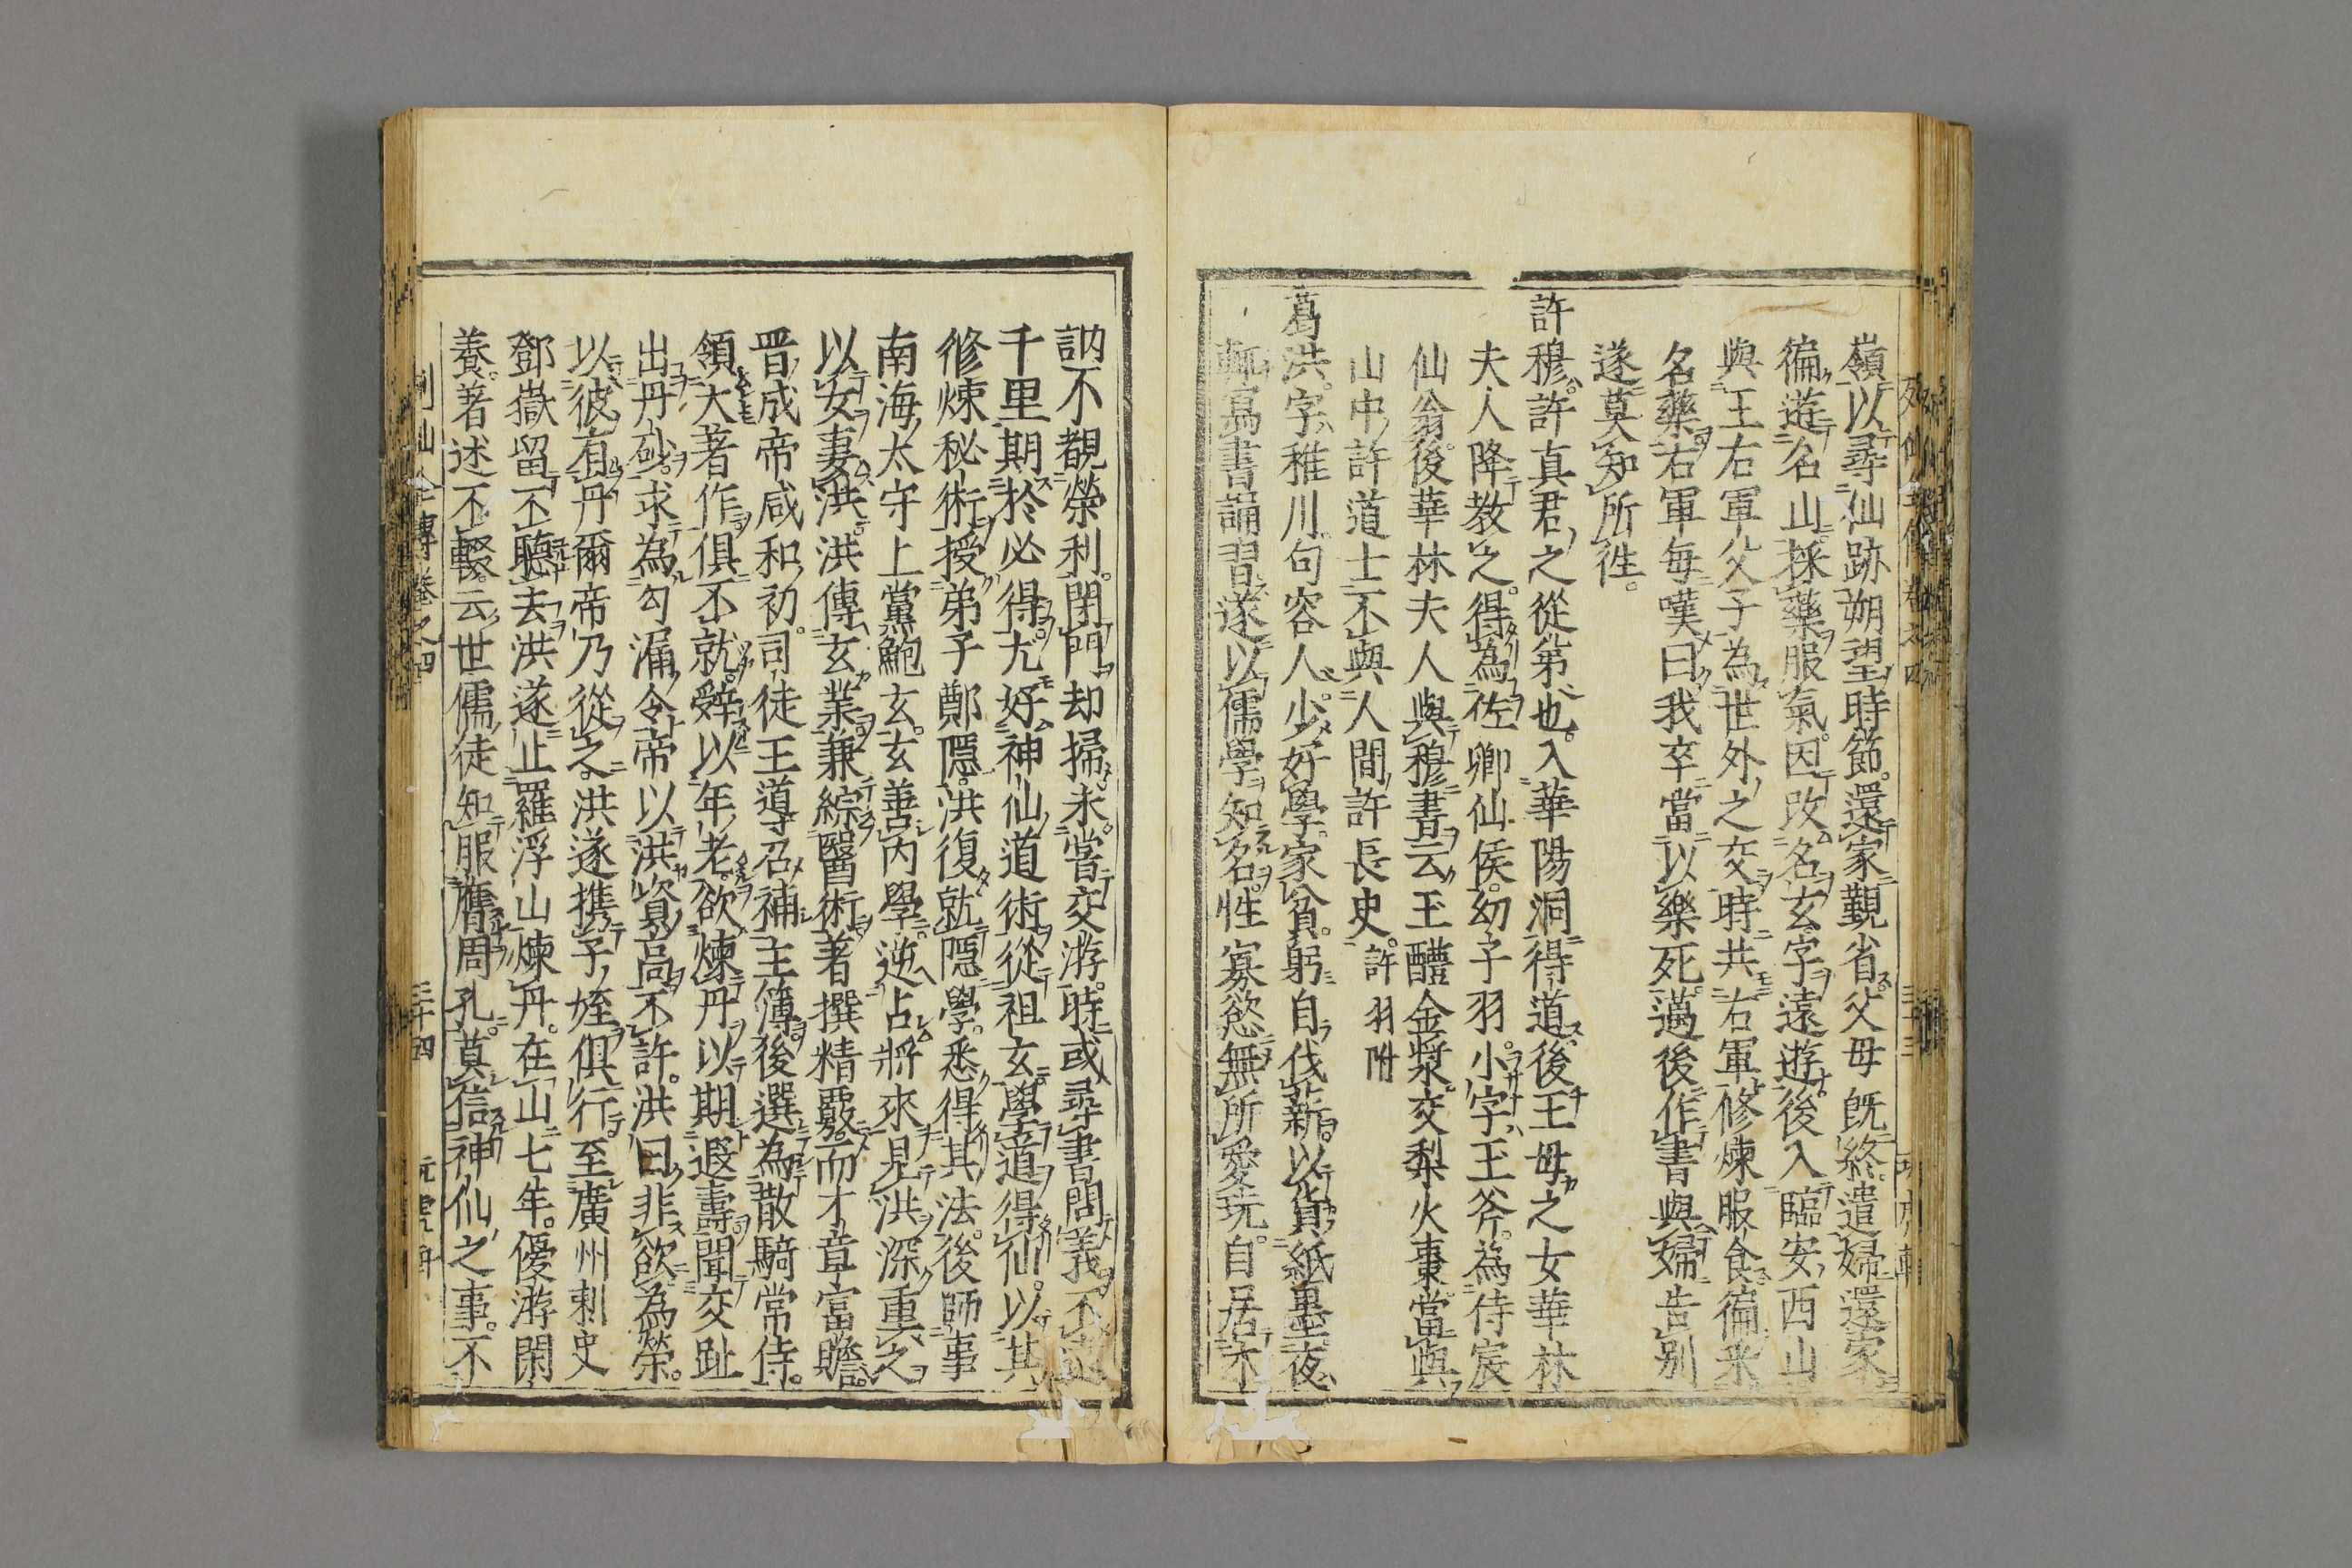 嶺以尋仙跡朔望時節還家覲省父母既終遣婦還家
徧遊名山採藥服氣因改名玄字遠遊後入臨安西山
與王右軍父子為世外之交時共右軍修煉服食徧采
名藥右軍每嘆曰我卒當以樂死邁後作書與婦告別
遂莫知所徃
許穆許真君之從弟也入華陽洞得道後王母之女華林
夫人降教之得為佐卿仙侯幼子羽小字玉斧為侍宸
仙翁後華林夫人與穆書云玉醴金漿交梨火棗當與
山中許道士不與人間許長史許羽附
葛洪字稚川句容人少好學家貧躬自伐薪以貨紙墨夜
輒寫書誦習遂以儒學知名性寡慾無所愛玩自居木
訥不覩榮利閉門却掃未嘗交游時或尋書問義不遠
千里期於必得尤好神仙道術從祖玄學道得仙以其
修煉秘術授弟子鄭隱洪復就隱學悉得其法後師事
南海太守上黨鮑玄玄善內學逆占將來見洪深重之
以女妻洪洪傳玄業兼綜醫術著撰精覈而才章富贍
晋成帝咸和初司徒王導召補主簿後選為散騎常侍
領大著作俱不就辤以年老欲煉丹以期遐壽聞交趾
出丹砂求為勾漏令帝以洪資高不許洪曰非欲為榮
以彼有丹爾帝乃從之洪遂携子姪俱行至廣州刺史
鄧嶽留不聽去洪遂止羅浮山煉丹在山七年優游閑
養著述不輟云世儒徒知服膺周孔莫信神仙之事不
列仙全傳卷之四 三十四